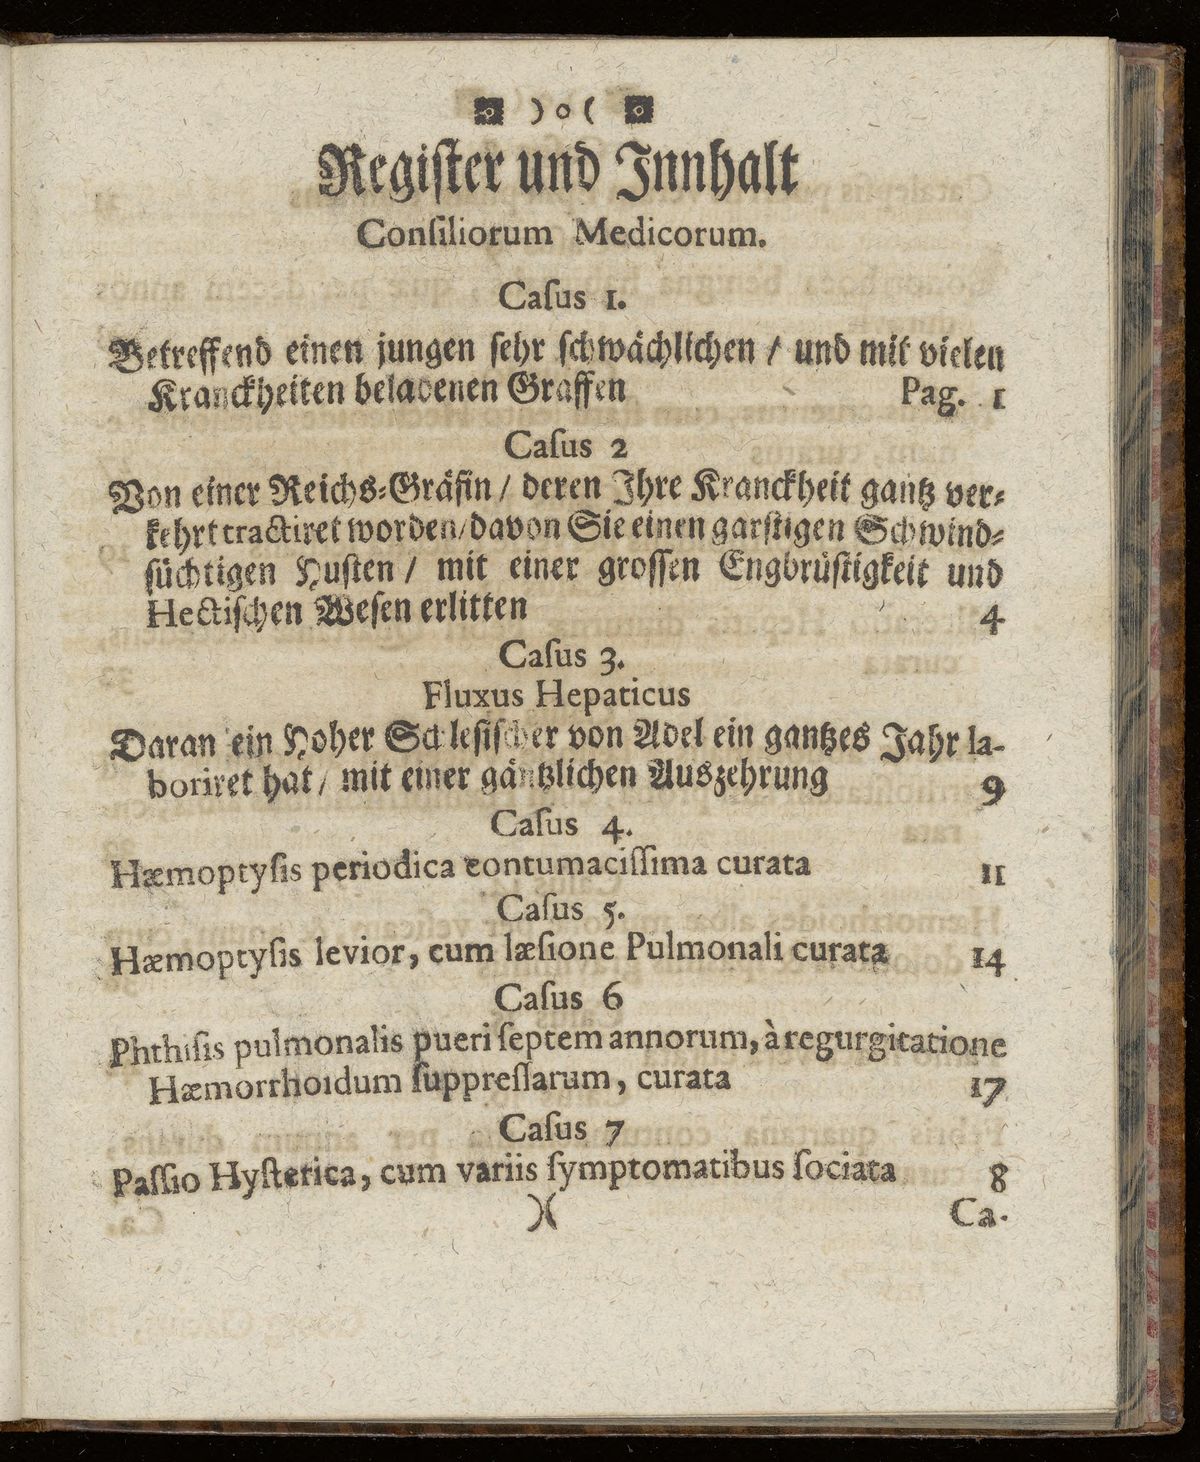 )o(
Regiſter und Innhalt
Conſiliorum Medicorum.
Caſus 1.
Betreffend einen jungen ſehr ſchwächlichen / und mit vielen
Kranckheiten beladenen Graffen Pag. 1
Caſus 2
Von einer Reichs-Gräfin / deren Ihre Kranckheit gantz ver-
kehrt tractiret worden/ davon Sie einen garſtigen Schwind-
ſüchtigen Huſten / mit einer groſſen Engbrüſtigkeit und
Hectiſchen Weſen erlitten 4
Caſus 3.
Fluxus Hepaticus
Daran ein Hoher Schleſiſcher von Adel ein gantzes Jahr la-
boriret hat / mit einer gäntzlichen Auszehrung 9
Caſus 4.
Hæmoptyſis periodica contumaciſſima curata 11
Caſus 5.
Hæmoptyſis levior, cum læſione Pulmonali curata 14
Caſus 6
Phthiſis pulmonalis pueri ſeptem annorum, à regurgitatione
Hæmorrhoidum ſuppreſſarum, curata 17
Caſus 7
Paſſio Hyſterica, cum variis ſymptomatibus ſociata 8
)( Ca.